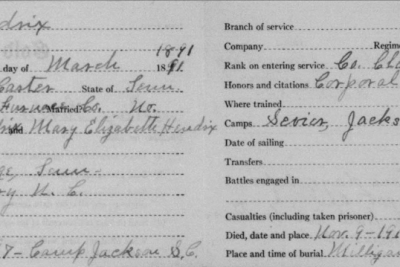 drix
1891
day of March 1891
Carter State of Tenn
Furnace Co. Married No.
and Mary Elizabeth Hendrix
Tenn
N. C.
7 - Camp Jackson S.C.
Branch of service
Company Regime
Rank on entering service Co. Cl
Honors and citations Corporal
Where trained
Camps Sevier, Jacks
Date of sailing
Transfers
Battles engaged in
Casualties (including taken prisoner)
Died, date and place Nov. 9-191
Place and time of burial Milligan